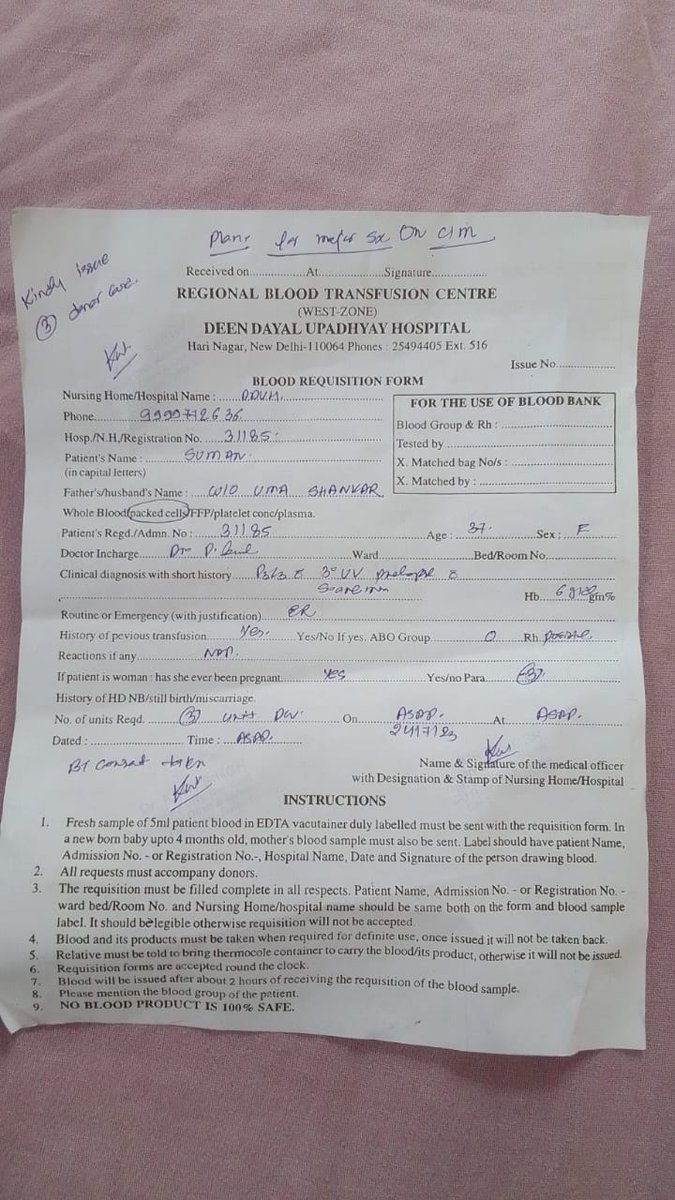 Plan for major Sx On c/m
Kindly issue
③ donor care.
Received on..............At...............Signature...............
REGIONAL BLOOD TRANSFUSION CENTRE
(WEST-ZONE)
DEEN DAYAL UPADHYAY HOSPITAL
Hari Nagar, New Delhi-110064 Phones : 25494405 Ext. 516
Issue No................
BLOOD REQUISITION FORM
Nursing Home/Hospital Name : DDUH.
Phone 9999712636
Hosp./N.H./Registration No. 31185
Patient's Name : SUMAN
(in capital letters)
Father's/husband's Name : W/O UMA SHANKAR
FOR THE USE OF BLOOD BANK
Blood Group & Rh :
Tested by
X. Matched bag No/s :
X. Matched by :
Whole Blood/packed cells/FFP/platelet conc/plasma.
Patient's Regd./Admn. No : 31185 Age : 37 Sex : F
Doctor Incharge Dr P. Ward Bed/Room No.
Clinical diagnosis with short history P3L3 3° UV prolapse
Hb 6 gm%
Routine or Emergency (with justification) ER
History of pevious transfusion Yes. Yes/No If yes, ABO Group O Rh positive
Reactions if any NAD.
If patient is woman : has she ever been pregnant yes Yes/no Para
History of HD NB/still birth/miscarriage.
No. of units Reqd. ③ unit On ASAP. At ASAP.
24/7/23
Dated : Time : ASAP.
BT consent taken
Name & Signature of the medical officer
with Designation & Stamp of Nursing Home/Hospital
INSTRUCTIONS
1. Fresh sample of 5ml patient blood in EDTA vacutainer duly labelled must be sent with the requisition form. In
a new born baby upto 4 months old, mother's blood sample must also be sent. Label should have patient Name,
Admission No. - or Registration No.-, Hospital Name, Date and Signature of the person drawing blood.
2. All requests must accompany donors.
3. The requisition must be filled complete in all respects. Patient Name, Admission No. - or Registration No. -
ward bed/Room No. and Nursing Home/hospital name should be same both on the form and blood sample
label. It should be legible otherwise requisition will not be accepted.
4. Blood and its products must be taken when required for definite use, once issued it will not be taken back.
5. Relative must be told to bring thermocole container to carry the blood/its product, otherwise it will not be issued.
6. Requisition forms are accepted round the clock.
7. Blood will be issued after about 2 hours of receiving the requisition of the blood sample.
8. Please mention the blood group of the patient.
9. NO BLOOD PRODUCT IS 100% SAFE.